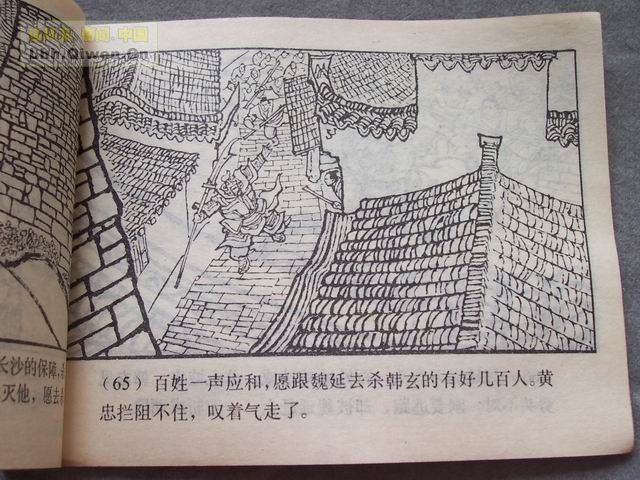 长沙的保障,
灭他,愿去
(65) 百姓一声应和,愿跟魏延去杀韩玄的有好几百人。黄
忠拦阻不住,叹着气走了。